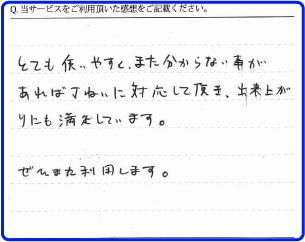 Q. 当サービスをご利用頂いた感想をご記載ください。
とても使いやすく、また分からない事が
あればすねいに対応して頂き、出来上が
りにも満足しています。
ぜひまた利用します。